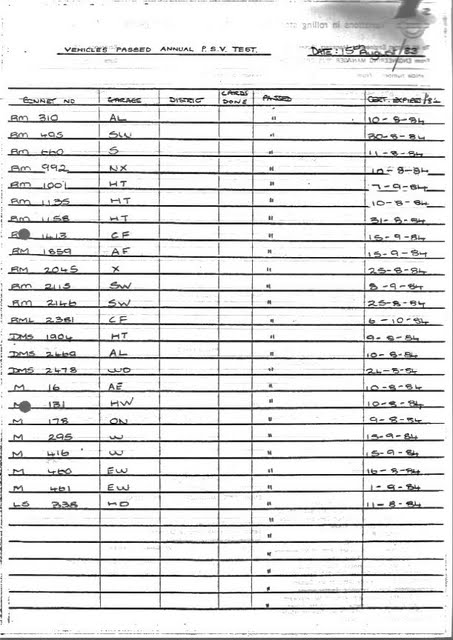 VEHICLES PASSED ANNUAL P.S.V. TEST. DATE: 15th August/83
BONNET NO GARAGE DISTRICT CARDS DONE PASSED CERT. EXPIRES
RM 310 AL " 10-8-84
RM 495 SW " 30-8-84
RM 660 S " 11-8-84
RM 992 NX " 10-8-84
RM 1001 HT " 7-9-84
RM 1135 HT " 10-8-84
RM 1158 HT " 31-8-84
RM 1413 CF " 15-9-84
RM 1859 AF " 15-9-84
RM 2045 X " 25-8-84
RM 2113 SW " 8-9-84
RM 2146 SW " 25-8-84
RML 2381 CF " 6-10-84
DMS 1904 HT " 9-8-84
DMS 2460 AL " 10-8-84
DMS 2478 WD " 24-8-84
M 16 AE " 10-8-84
M 131 HW " 10-8-84
M 178 ON " 9-8-84
M 295 W " 15-9-84
M 416 W " 15-9-84
M 460 EW " 16-8-84
M 461 EW " 1-9-84
LS 338 HD " 11-8-84
"
"
"
"
"
"